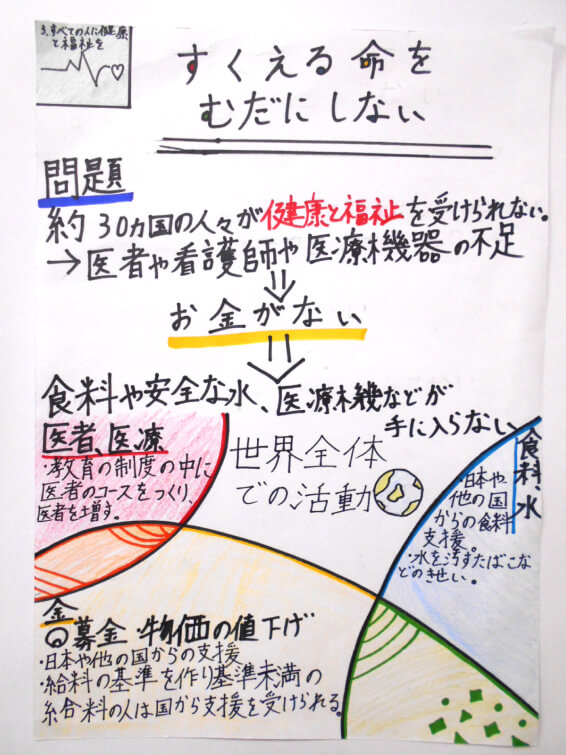 3.すべての人に健康
と福祉を
すくえる命を
むだにしない
問題
約30ヵ国の人々が健康と福祉を受けられない。
→医者や看護師や医療機器の不足
お金がない
食料や安全な水、医療機などが
手に入らない
医者、医療
・教育の制度の中に
医者のコースをつくり、
医者を増す。
世界全体
での活動
食料、水
・日本や
他の国
からの食料
支援。
・水を汚すたばこな
どのきせい。
金
◎募金・物価の値下げ
・日本や他の国からの支援
・給料の基準を作り基準未満の
給料の人は国から支援を受けられる。